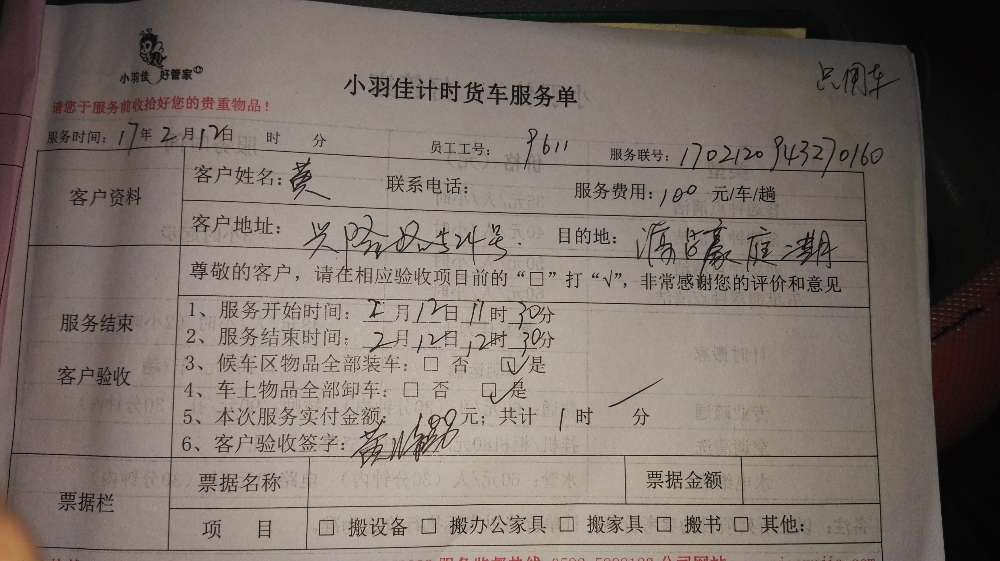 小羽佳 好管家
小羽佳计时货车服务单
只用车
请您于服务前收拾好您的贵重物品！
服务时间：17年2月12日 时 分 员工工号：9611 服务联号：1702120943270160
客户资料
客户姓名：黄 联系电话： 服务费用：100 元/车/趟
客户地址：兴隆路524号 目的地：豪庭二期
尊敬的客户，请在相应验收项目前的“□”打“√”，非常感谢您的评价和意见
服务结束
客户验收
1、服务开始时间：2月12日11时30分
2、服务结束时间：2月12日12时30分
3、候车区物品全部装车：□ 否 ☑是
4、车上物品全部卸车：□ 否 ☑是
5、本次服务实付金额：100元；共计 1 时 分
6、客户验收签字：黄
票据栏
票据名称 票据金额
项 目 □ 搬设备 □ 搬办公家具 □ 搬家具 □ 搬书 □ 其他：